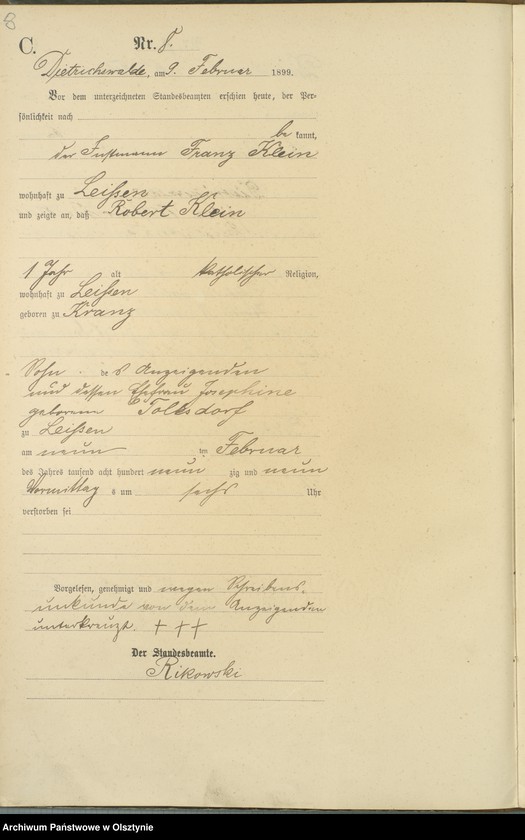 8
C.
Nr. 8.
Dietrichswalde, am 9. Februar 1899.
Vor dem unterzeichneten Standesbeamten erschien heute, der Per-
sönlichkeit nach
be kannt,
der Instmann Franz Klein
wohnhaft zu Leißen
und zeigte an, daß Robert Klein
1 Jahr alt katholischer Religion,
wohnhaft zu Leißen
geboren zu Kranz
Sohn des Anzeigenden
und dessen Ehefrau Josephine
geborene Tolksdorf
zu Leißen
am neunten Februar
des Jahres tausend acht hundert neunzig und neun
Vormittags um sechs Uhr
verstorben sei
Vorgelesen, genehmigt und wegen Schreibens-
unkunde von dem Anzeigenden
unterkreuzt. + + +
Der Standesbeamte.
Rikowski
Archiwum Państwowe w Olsztynie